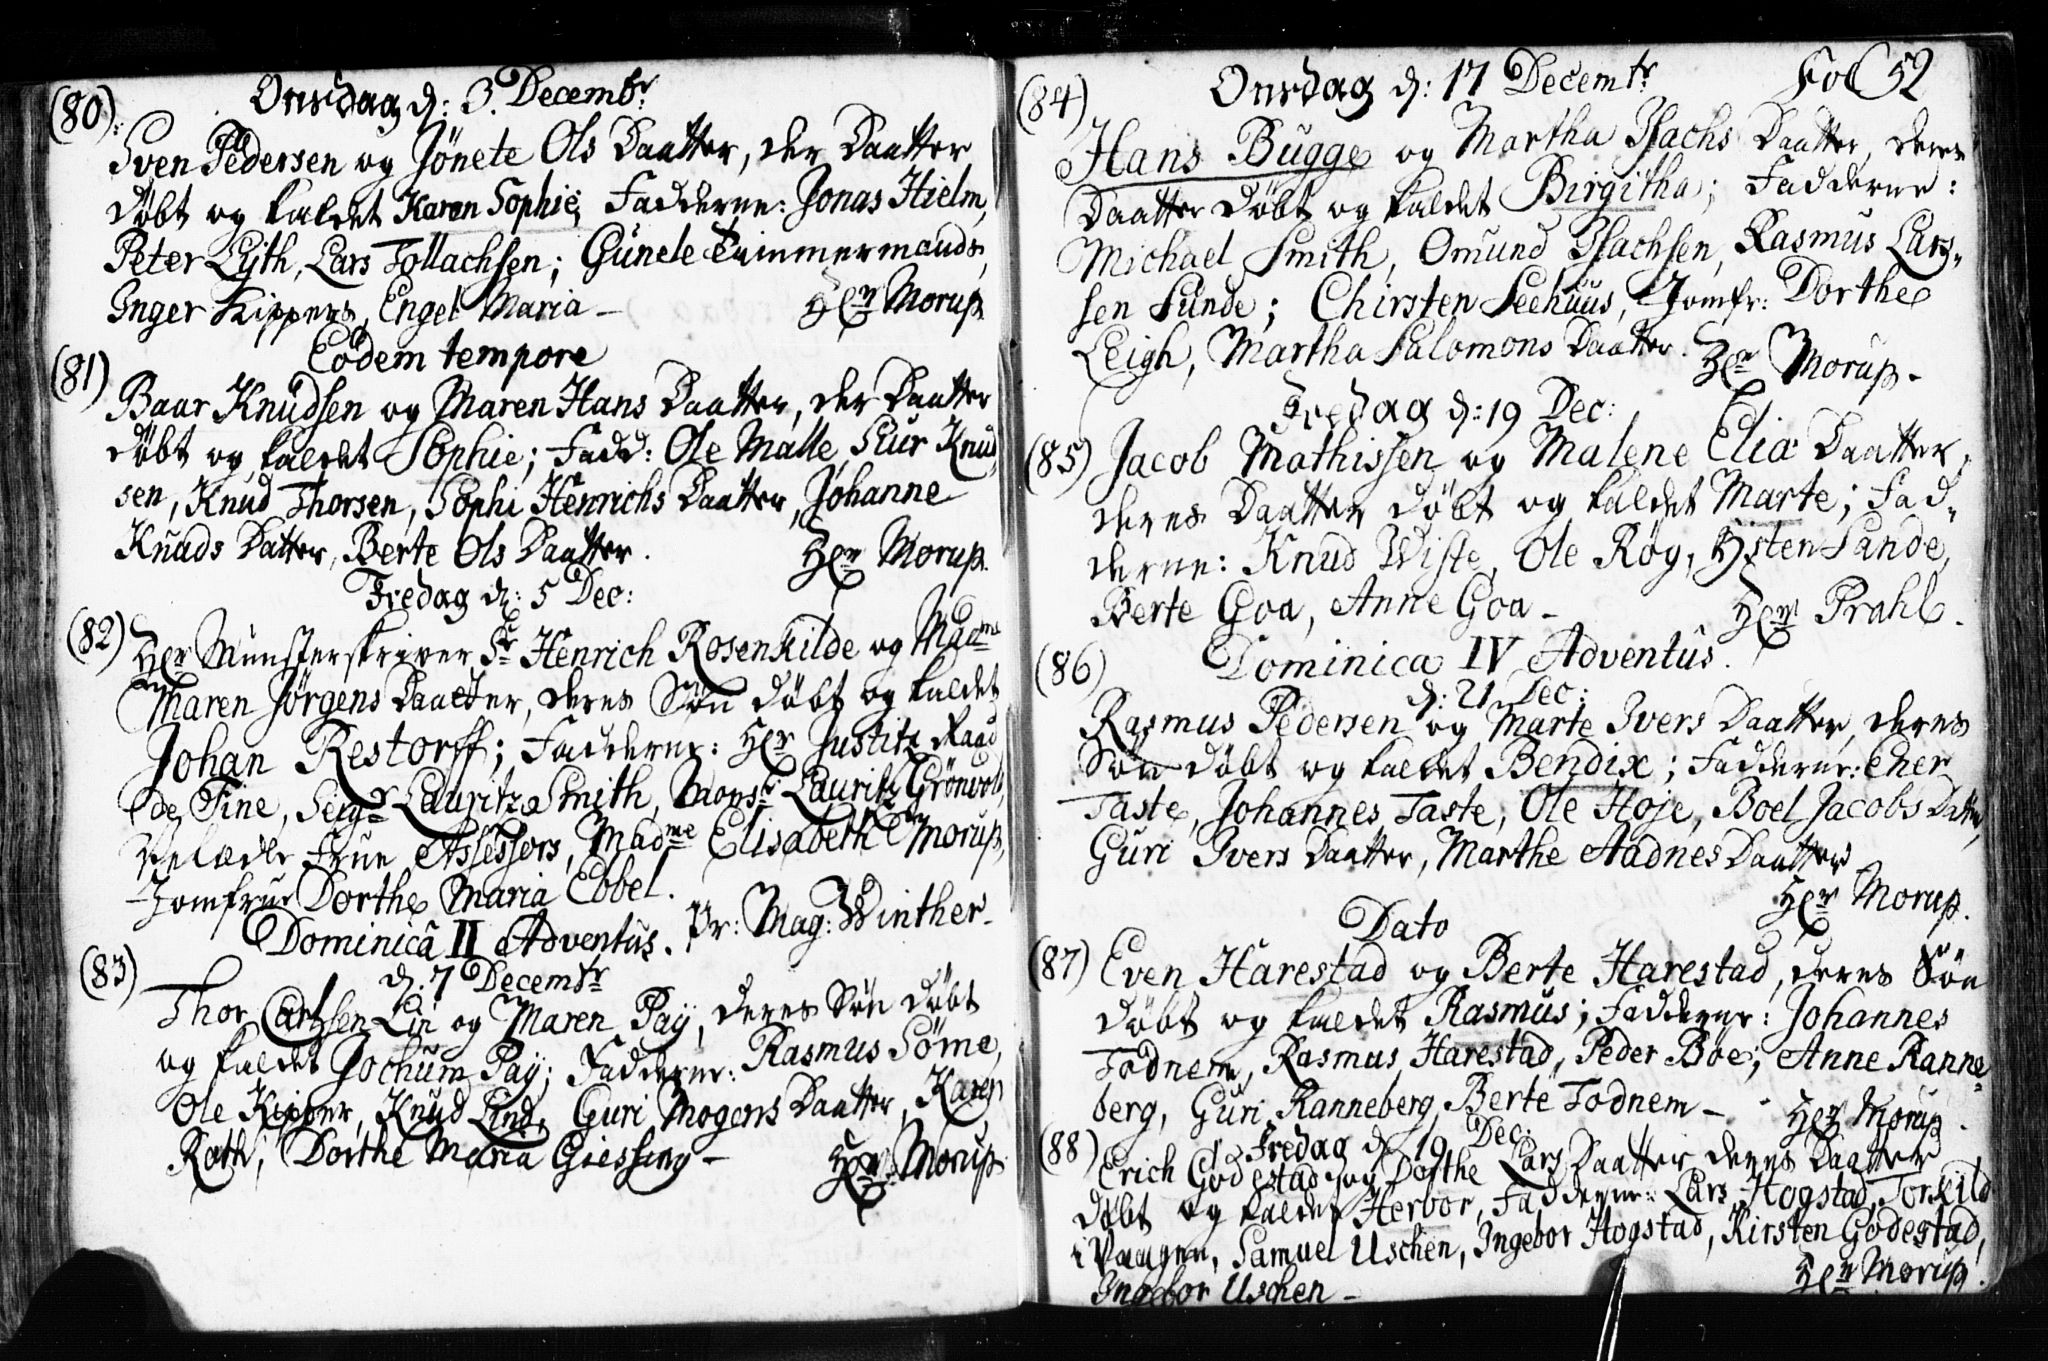 Onsdag d: 3. Decembr
(80): Sven Pedersen og Jönete Ols Daatter, der Daatter
döbt og kaldet Karen Sophie; Fadderne: Jonas Hielm,
Peter Lyth, Lars Tollachsen; Günele Timmermands,
Inger Kippers, Engel Maria – Her Morup
Eodem tempore
(81) Baar Knudsen og Maren Hans Daatter, der Daatter
döbt og kaldet Sophie; Fadd: Ole Malle, Siur Knud
sen, Knud Thorsen, Sophi Henrichs Daatter, Johanne
Knuds Datter, Berte Ols Daatter. Her Morup.
Fredag d: 5 Dec:
(82) Her Munsterskriver Sr Henrich Rosenkilde og Madme
Maren Jörgens Daatter, deres Sön döbt og kaldet
Johan Restorff; Fadderne: Her Justitz Raad
de Fine, Sergr Lauritz Smith, Monsr Lauritz Grönvold,
Velædle Frue Assessors, Madme Elisabeth Morup,
Jomfrue Dorthe Maria Ebbel.
Pr: Mag: Winther
Dominicâ II Adventus.
d. 7 Decembr
(83) Thor Carlsen Lin og Maren Pay, deres Sön döbt
og kaldet Jochum Pay; Fadderne: Rasmus Söme,
Ole Kipper, Knud Lind, Guri Mogens Daatter, Karen
Roth, Dorthe Maria Giessing – Her Morup
Fol 52
Onsdag d: 17 Decembr
(84) Hans Bugge og Martha Isachs Daatter, deres
Daatter döbt og kaldet Birgitha; Fadderne:
Michael Smith, Omund Isachsen, Rasmus Lars„
sen Sunde; Chirsten Seehuus, Jomfr: Dorthe
Leigh, Martha Salomons Daatter. Her Morup –
Fredag d: 19 Dec:
(85) Jacob Mathissen og Malene Eliæ Daatter,
deres Daatter döbt og kaldet Marte; Fad„
derne: Knud Wiste, Ole Røg, Østen Sande,
Berte Goa, Anne Goa – Her Prahl.
(86) Dominica IV Adventûs.
d: 21 Dec:
Rasmus Pedersen og Marte Ivers Daatter, deres
Sön döbt og kaldet Bendix; Fadderne: Eher
Taste, Johannes Taste, Ole Hoje, Boel Jacobs Datter,
Guri Ivers Daatter, Marthe Aadnes Daatter
Her Morup.
Dato
(87) Even Harestad og Berte Harestad, deres Sön
döbt og kaldet Rasmus; Fadderne: Johannes
Todnem, Rasmus Harestad, Peder Böe; Anne Ranne
berg, Guri Ranneberg, Berte Todnem – Her Morup.
Fredag d 19 Dec:
(88) Erich Godestad og Dorthe Lars Daatter deres Daatter
döbt og kaldet Herbor, Fadderne: Lars Hogstad, Torkild
i Vaagen, Samuel Uschen, Ingebor Hogstad, Kirsten Godestad,
Ingebor Uschen – Her Morup.